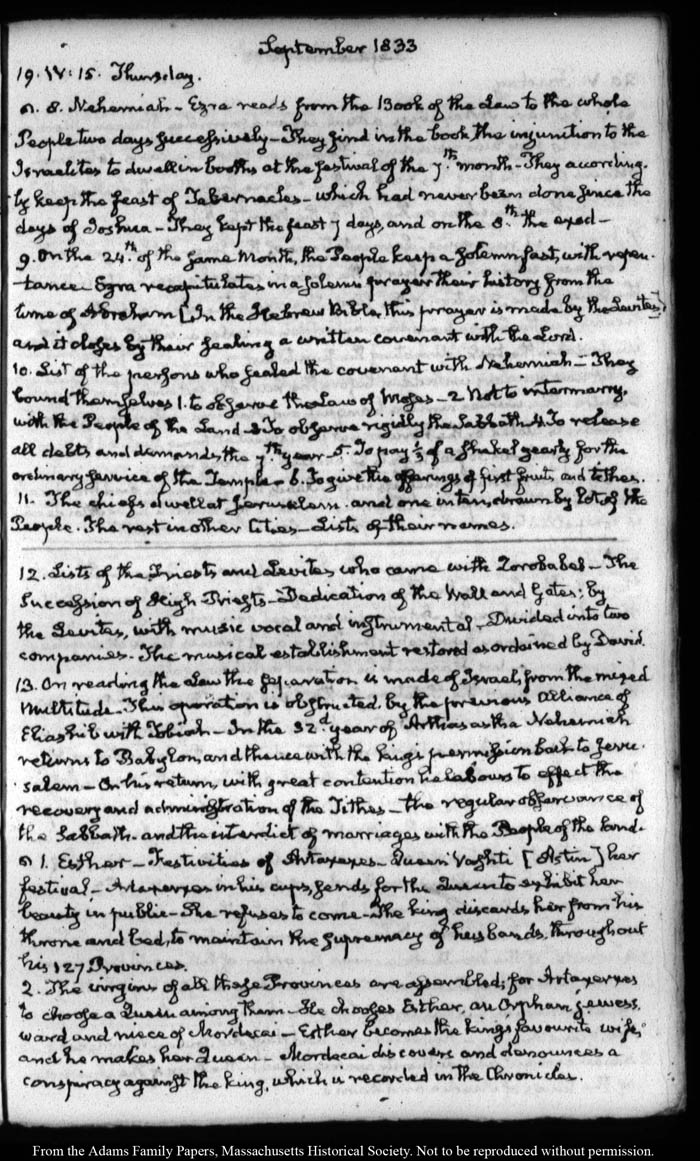 September 1833
19. IV: 15. Thursday.
8. Nehemiah - Ezra reads from the Book of the Law to the whole
People two days successively - They find in the book the injunction to the
Israelites to dwell in booths at the festival of the 7th month - They according-
ly keep the feast of Tabernacles - which had never been done since the
days of Joshua - They kept the feast 7 days, and on the 8th the exod -
9. On the 24th of the same Month, the People keep a solemn fast, with repen-
-tance - Ezra recapitulates in a solemn prayer their history from the
time of Abraham [In the Hebrew Bible, this prayer is made by the Levites]
and it closes by their sealing a written covenant with the Lord.
10. List of the persons who sealed the covenant with Nehemiah - They
bound themselves 1. to observe the Law of Moses - 2 Not to intermarry,
with the People of the Land - 3 To observe rigidly the Sabbath 4. To release
all debts and demands, the 7th year - 5. To pay 1/3 of a Shekel yearly for the
ordinary service of the Temple - 6. To give the offerings of first fruits and tithes.
11. The chiefs dwell at Jerusalem. and one in ten, drawn by Lot of the
People. The rest in other Cities - Lists of their names.
12. Lists of the Priests and Levites who came with Zorobabel - The
Succession of High Priests - Dedication of the Wall and Gates; by
the Levites, with music vocal and instrumental - Divided into two
companies. The musical establishment restored as ordained by David.
13. On reading the Law the separation is made of Israel, from the mixed
Multitude - This operation is obstructed, by the previous Alliance of
Eliashib with Tobiah - In the 32d year of Arthasastha Nehemiah
returns to Babylon, and thence with the king's permission back to Jeru-
salem - On his return, with great contention he labours to effect the
recovery and administration of the Tithes - the regular observance of
the Sabbath. and the interdict of marriages with the People of the Land.
1. Esther - Festivities of Artaxerxes - Queen Vashti [Astin] her
festival - Artaxerxes in his cups, sends for the Queen to exhibit her
beauty in public - She refuses to come - The king discards her from his
throne and bed, to maintain the supremacy of husbands, throughout
his 127 Provinces.
2. The virgins of all these Provinces are assembled; for Artaxerxes
to choose a Queen among them - He chooses Esther, an Orphan jewess,
ward and niece of Mordecai - Esther becomes the king's favourite wife,
and he makes her Queen - Mordecai discovers and denounces a
conspiracy against the king, which is recorded in the Chronicles.
From the Adams Family Papers, Massachusetts Historical Society. Not to be reproduced without permission.